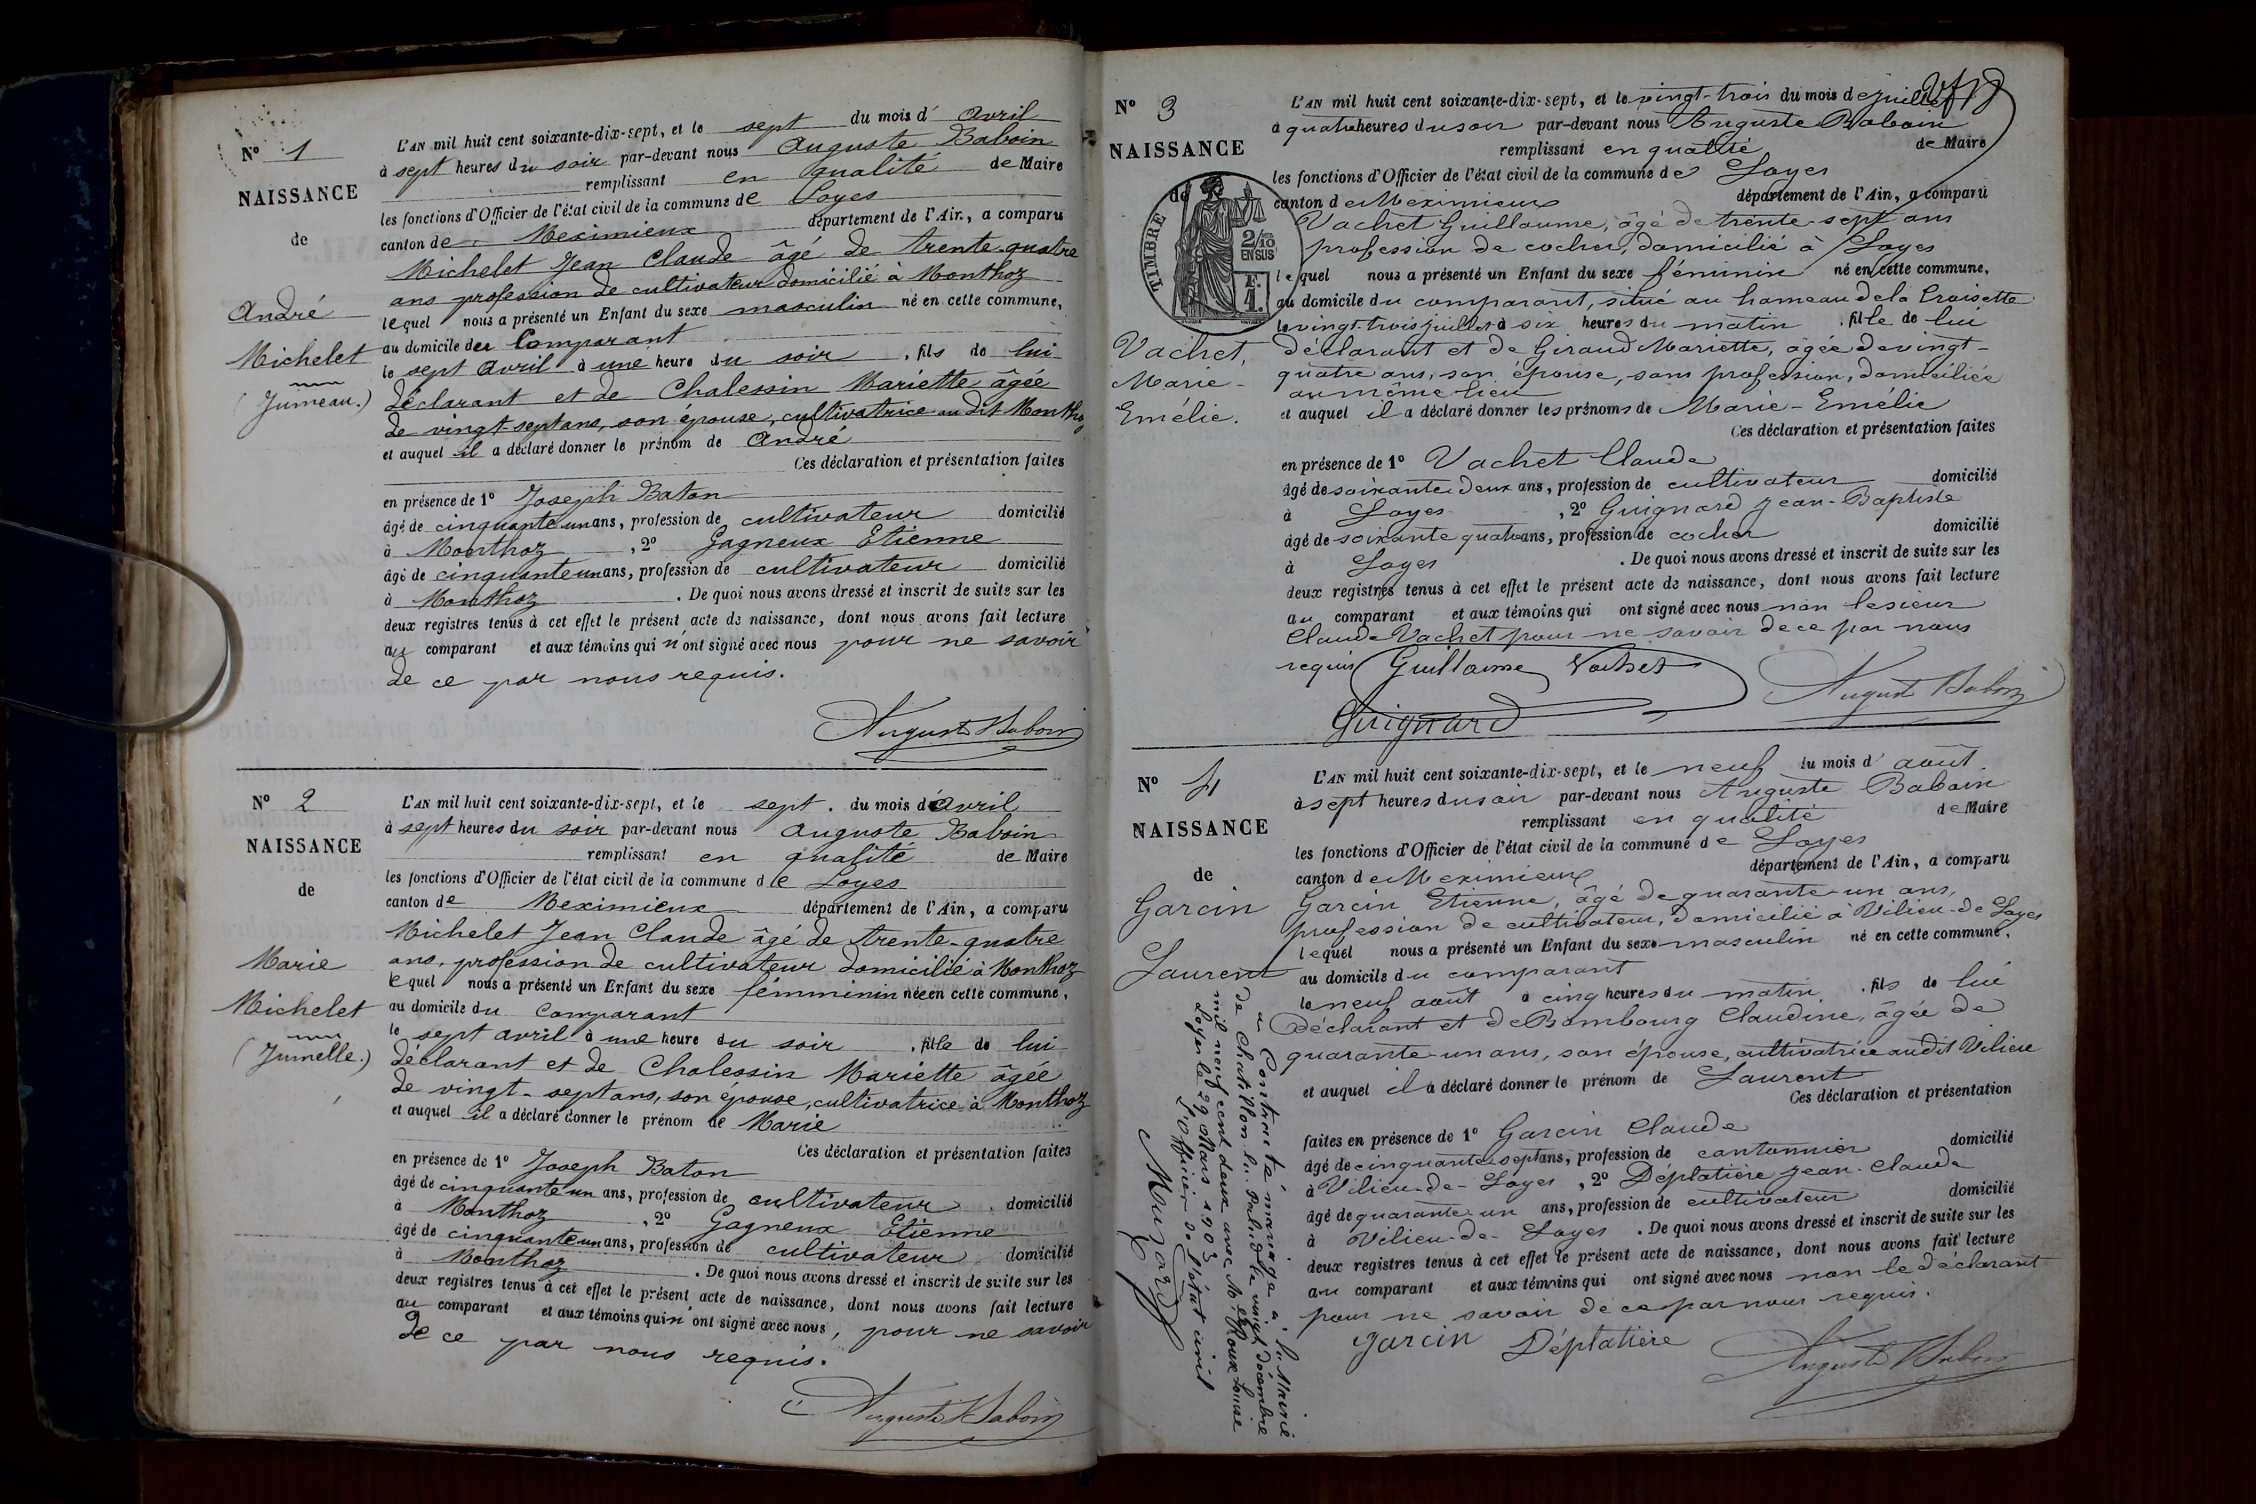 N° 1
NAISSANCE
de
André
Michelet
(Jumeau.)
L'AN mil huit cent soixante-dix-sept, et le sept du mois d' avril
à sept heures du soir par-devant nous Auguste Baboin
remplissant en qualité de Maire
les fonctions d'Officier de l'état civil de la commune de Loyes
canton de Meximieux département de l'Ain, a comparu
Michelet Jean Claude âgé de trente-quatre
ans profession de cultivateur domicilié à Monthoz
lequel nous a présenté un Enfant du sexe masculin né en cette commune,
au domicile du Comparant
le sept avril à une heure du soir , fils de lui
déclarant et de Chalessin Mariette âgée
de vingt-sept ans, son épouse, cultivatrice au dit Monthoz
et auquel il a déclaré donner le prénom de André
Ces déclaration et présentation faites
en présence de 1° Joseph Baton
âgé de cinquante un ans, profession de cultivateur domicilié
à Monthoz , 2° Gagneux Etienne
âgé de cinquante un ans, profession de cultivateur domicilié
à Monthoz . De quoi nous avons dressé et inscrit de suite sur les
deux registres tenus à cet effet le présent acte de naissance, dont nous avons fait lecture
au comparant et aux témoins qui n'ont signé avec nous pour ne savoir
de ce par nous requis.
Auguste Baboin
N° 2
NAISSANCE
de
Marie
Michelet
(Jumelle.)
L'AN mil huit cent soixante-dix-sept, et le sept. du mois d'avril
à sept heures du soir par-devant nous Auguste Baboin
remplissant en qualité de Maire
les fonctions d'Officier de l'état civil de la commune de Loyes
canton de Meximieux département de l'Ain, a comparu
Michelet Jean Claude âgé de trente-quatre
ans, profession de cultivateur domicilié à Monthoz
lequel nous a présenté un Enfant du sexe fémminin née en cette commune,
au domicile du Comparant
le sept avril à une heure du soir , fille de lui
déclarant et de Chalessin Mariette âgée
de vingt-sept ans, son épouse, cultivatrice à Monthoz
et auquel il a déclaré donner le prénom de Marie
Ces déclaration et présentation faites
en présence de 1° Joseph Baton
âgé de cinquante un ans, profession de cultivateur domicilié
à Monthoz , 2° Gagneux Etienne
âgé de cinquante un ans, profession de cultivateur domicilié
à Monthoz . De quoi nous avons dressé et inscrit de suite sur les
deux registres tenus à cet effet le présent acte de naissance, dont nous avons fait lecture
au comparant et aux témoins qui n'ont signé avec nous, pour ne savoir
de ce par nous requis.
Auguste Baboin
N° 3
NAISSANCE
de
TIMBRE
2/10 EN SUS
F. 1.
Vachet,
Marie-
Emélie.
L'AN mil huit cent soixante-dix-sept, et le vingt-trois du mois de juillet
à quatre heures du soir par-devant nous Auguste Baboin
remplissant en qualité de Maire
les fonctions d'Officier de l'état civil de la commune de Loyes
canton de Meximieux département de l'Ain, a comparu
Vachet Guillaume, âgé de trente-sept ans
profession de cocher, domicilié à Loyes
lequel nous a présenté un Enfant du sexe féminin né en cette commune,
au domicile du comparant, situé au hameau de la Croisette
le vingt-trois juillet à six heures du matin , fille de lui
déclarant et de Giraud Mariette, âgée de vingt-
quatre ans, son épouse, sans profession, domiciliée
au même lieu
et auquel il a déclaré donner les prénoms de Marie-Emélie
Ces déclaration et présentation faites
en présence de 1° Vachet Claude
âgé de soixante deux ans, profession de cultivateur domicilié
à Loyes , 2° Guignard Jean-Baptiste
âgé de soixante quatre ans, profession de cocher domicilié
à Loyes . De quoi nous avons dressé et inscrit de suite sur les
deux registres tenus à cet effet le présent acte de naissance, dont nous avons fait lecture
au comparant et aux témoins qui ont signé avec nous non le sieur
Claude Vachet pour ne savoir de ce par nous
requis Guillaume Vachet Auguste Baboin
Guignard
N° 4
NAISSANCE
de
Garcin
Laurent
L'AN mil huit cent soixante-dix-sept, et le neuf du mois d'août
à sept heures du soir par-devant nous Auguste Baboin
remplissant en qualité de Maire
les fonctions d'Officier de l'état civil de la commune de Loyes
canton de Meximieux département de l'Ain, a comparu
Garcin Etienne, âgé de quarante-un ans,
profession de cultivateur, domicilié à Vilieu-de-Loyes
lequel nous a présenté un Enfant du sexe masculin né en cette commune,
au domicile du comparant
le neuf août à cinq heures du matin , fils de lui
déclarant et de Bombourg Claudine, âgée de
quarante-un ans, son épouse, cultivatrice audit Vilieu
et auquel il a déclaré donner le prénom de Laurent
Ces déclaration et présentation
faites en présence de 1° Garcin Claude
âgé de cinquante-sept ans, profession de cantonnier domicilié
à Vilieu-de-Loyes , 2° Déplatière Jean-Claude
âgé de quarante un ans, profession de cultivateur domicilié
à Vilieu-de-Loyes . De quoi nous avons dressé et inscrit de suite sur les
deux registres tenus à cet effet le présent acte de naissance, dont nous avons fait lecture
au comparant et aux témoins qui ont signé avec nous non le déclarant
pour ne savoir de ce par nous requis.
Garcin Déplatière Auguste Baboin
a Contracté mariage à la Mairie
de Chatillon la Palud le vingt décembre
mil neuf cent deux avec Mlle Roux Louise
Loyes le 29 Mars 1903
L'Officier de l'état civil